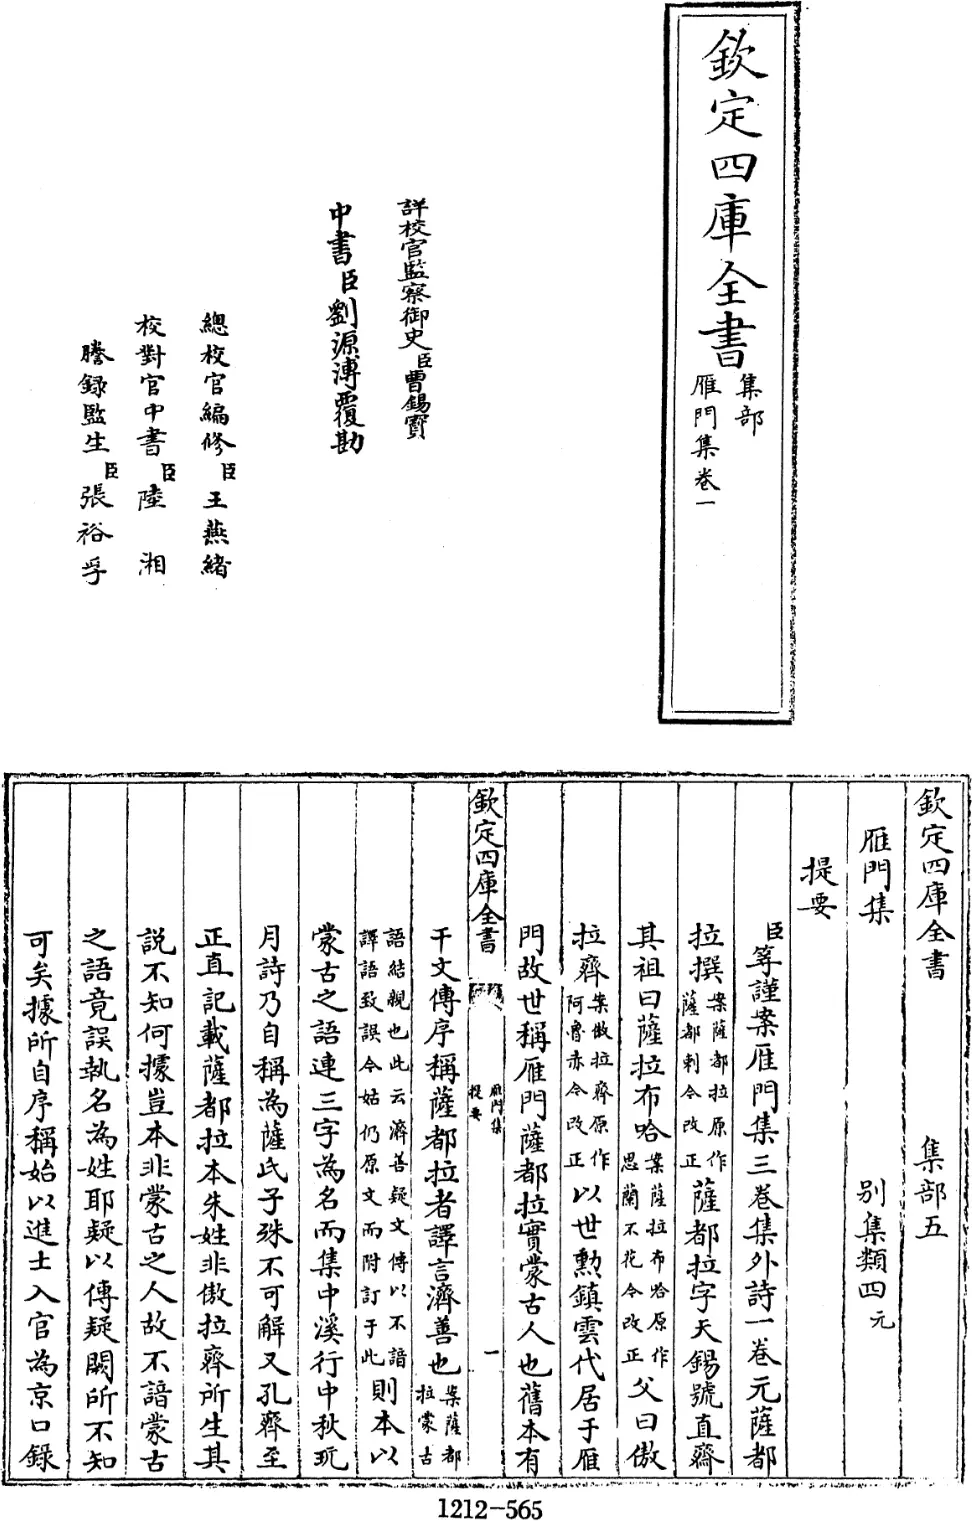 欽定四庫全書
集部
雁門集卷一
詳校官監察御史臣曹錫寶
中書臣劉源溥覆勘
總校官編修臣王燕緒
校對官中書臣陸湘
謄録監生臣張裕孚
欽定四庫全書 集部五
雁門集 别集類四元
提要
臣等謹案雁門集三巻集外詩一巻元薩都
拉撰案薩都拉原作薩都剌今改正薩都拉字天錫號直齋
其祖曰薩拉布哈案薩拉布哈原作思蘭不花今改正父曰傲
拉齊案傲拉齊原作阿魯赤今改正以世勲鎮雲代居于雁
門故世稱雁門薩都拉實蒙古人也舊本有
欽定四庫全書 雁門集提要 一
干文傳序稱薩都拉者譯言濟善也案薩都拉蒙古
語結親也此云濟善疑文傳以不諳譯語致誤今姑仍原文而附訂于此則本以
蒙古之語連三字為名而集中溪行中秋玩
月詩乃自稱為薩氏子殊不可解又孔齊至
正直記載薩都拉本朱姓非傲拉齊所生其
説不知何據豈本非蒙古之人故不諳蒙古
之語竟誤執名為姓耶疑以傳疑闕所不知
可矣據所自序稱始以進士入官為京口錄
1212-565